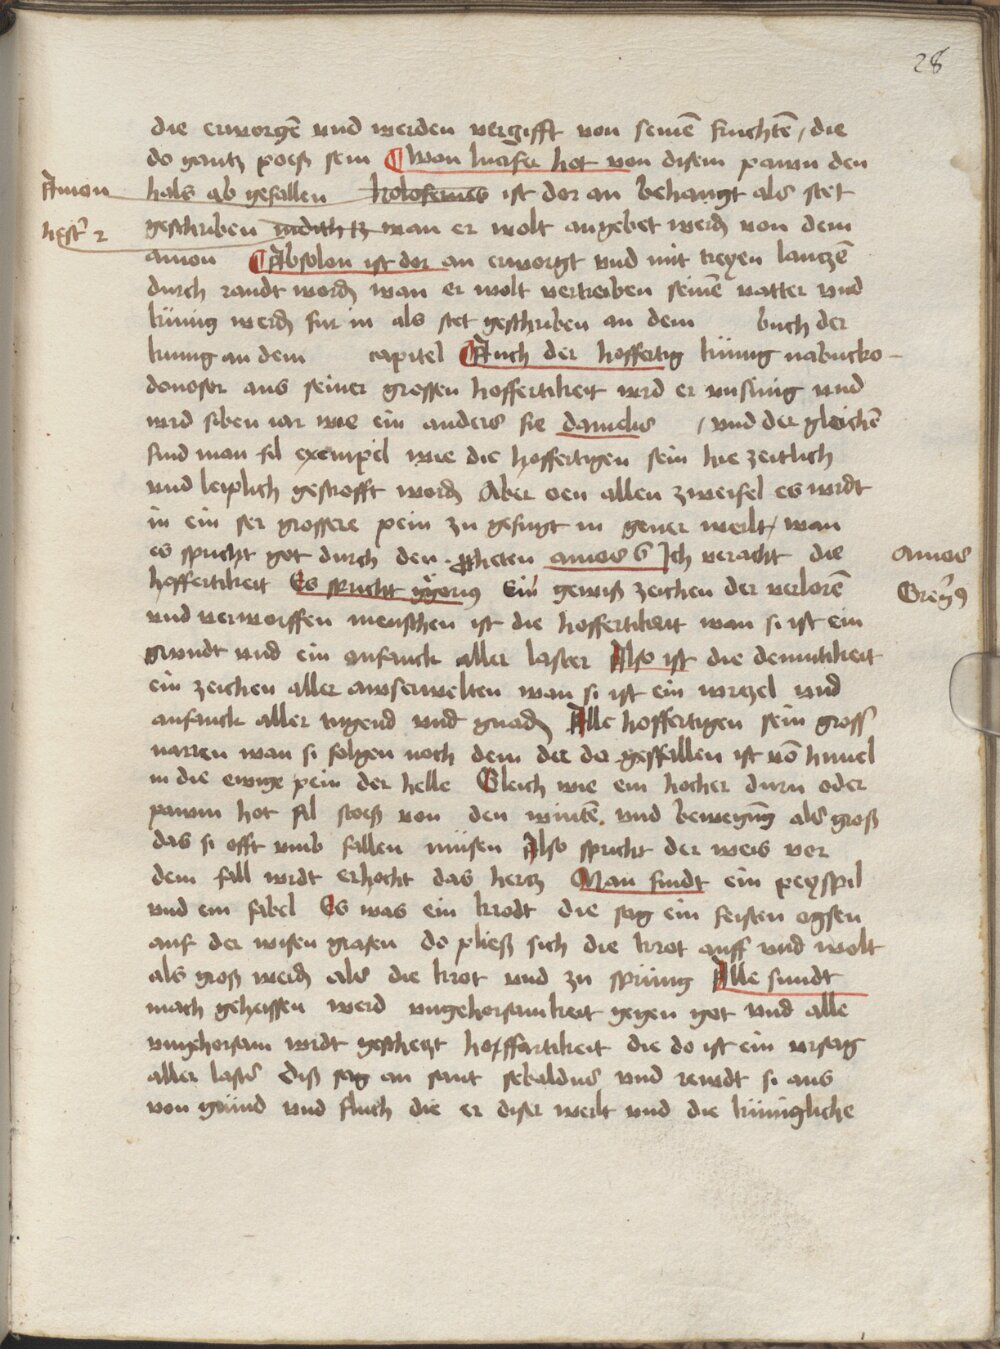 28
die erworgē vnd werden vergifft von seinē fruchtē / die
do gantz poeß sein ¶ Wan lucifer hot von disem pawm den
Amon
hals ab gefallen holofernes ist dor an behangt als stet
hest̄ 2
geschriben Judith 13 wan er wolt angebet werdē von dem
amon ¶ Absolon ist dor an erworgt vnd mit treyen lanczē
durch randt wordē wan er wolt vertreiben seinē vatter vnd
künig werdē fur in als stet geschriben an dem buch der
kunig an dem capitel ¶ Auch der hoffertig künig nabucko-
donosor aus seiner grossen hoffertikeit wrd er vnsinig vnd
wrd siben iar wie ein anders fie danielis / vnd der gleichē
find man fil exempel wie die hoffertigen sein hie zeitlich
vnd leiplich gestrofft wordē Aber oen allen zweifel es wirdt
in ein ser grossere pein zu gefugt in gener werlt / wan
es spricht got durch den ꝓheten amos 6 Ich veracht die
amos
hoffertikeit Es spricht g̊gorius Ein gewiß zeichen der verlorē
Greg̊9
vnd verworffen menschen ist die hoffertikeit wan si ist ein
grundt vnd ein anfanck aller laster Also ist die demutikeit
ein zeichen aller awserwelten wan si ist ein wrczel vnd
anfanck aller tugend vnd gnadē Alle hoffertigen sein gross
narren wan si folgen noch dem der do gefallen ist vō himel
in die ewige pein der helle Gleich wie ein hocher durn oder
pawm hot fil stoeß von den wintē vnd bewegūg als groß
das si offt vmb fallen müsen Also spricht der weis vor
dem fall wrdt erhocht das hertz Man findt ein peyspil
vnd ein fabel Es was ein krodt die sag ein feisten ogsen
auf der wisen grasen do pließ sich die krot auff vnd wolt
als groß werdē als die krot vnd zu sprüng Alle sundt
mach geheissen werd vngehorsamkeit gegen got vnd alle
vngehorsam wrdt geschetzt hoffartikeit die do ist ein vrsag
aller last̄ Diß sag an sant sebaldus vnd rewdt si aus
von gründ vnd fluch die er diser werlt vnd die künigliche